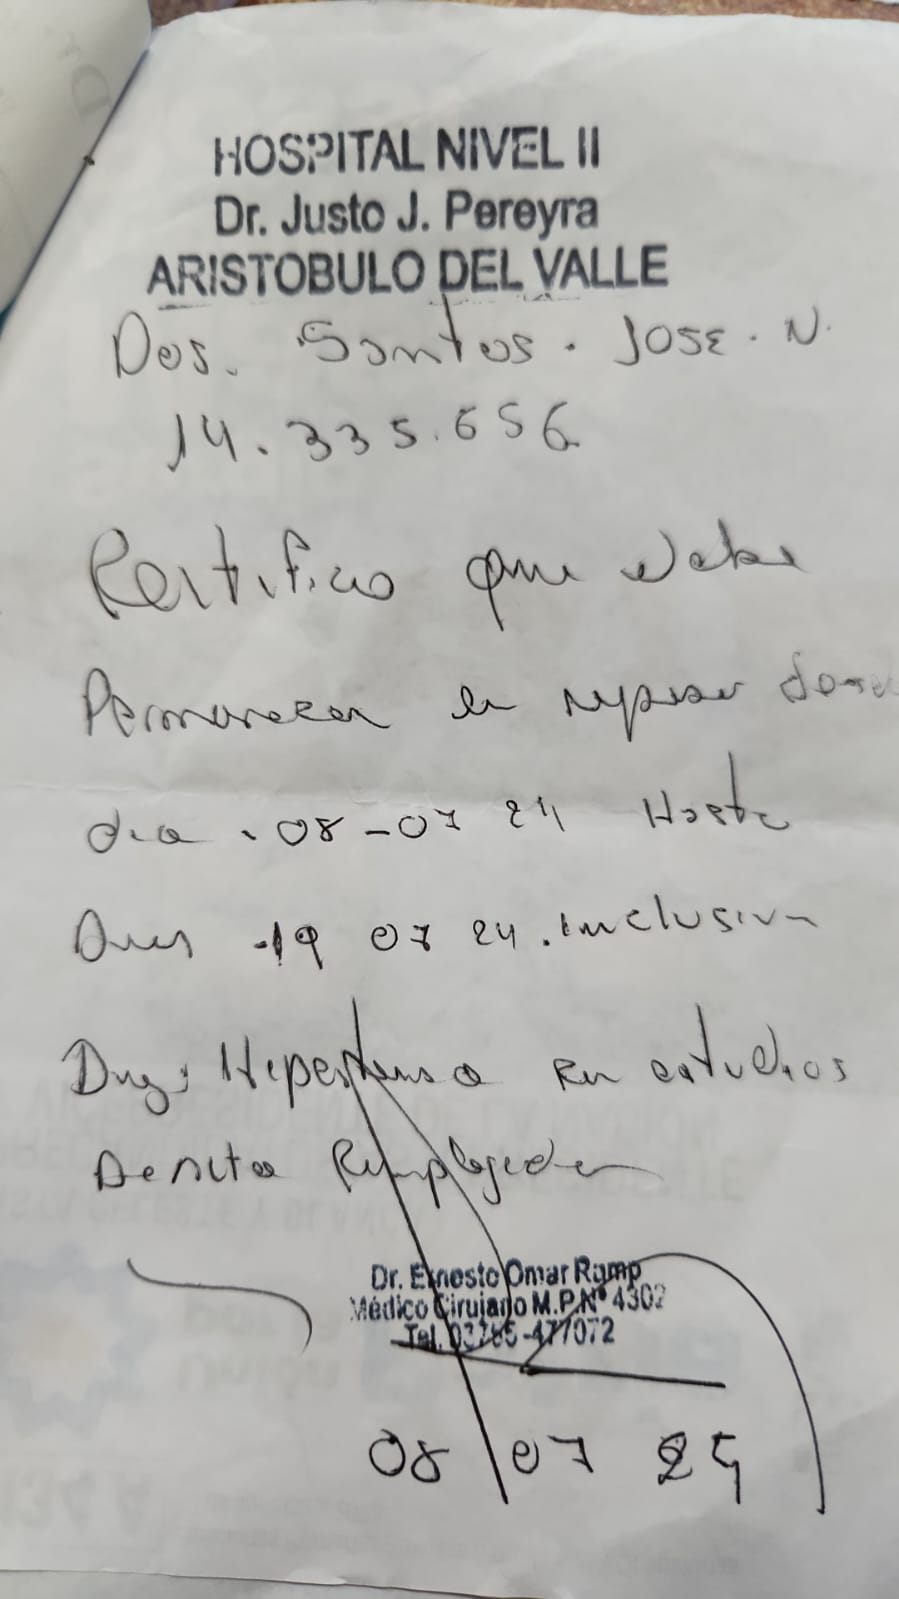 HOSPITAL NIVEL II
Dr. Justo J. Pereyra
ARISTOBULO DEL VALLE
Dos. Santos. JOSE. N.
14.335.656
Certifico que debe
Permanecer en reposo
dia 08-07 24 Hasta
19 07 24. inclusive
Hipertenso en estudios
Dr. Ernesto Omar Ramp
Médico Cirujano M.P.Nº 4302
Tel. 03755-477072
08/07 24